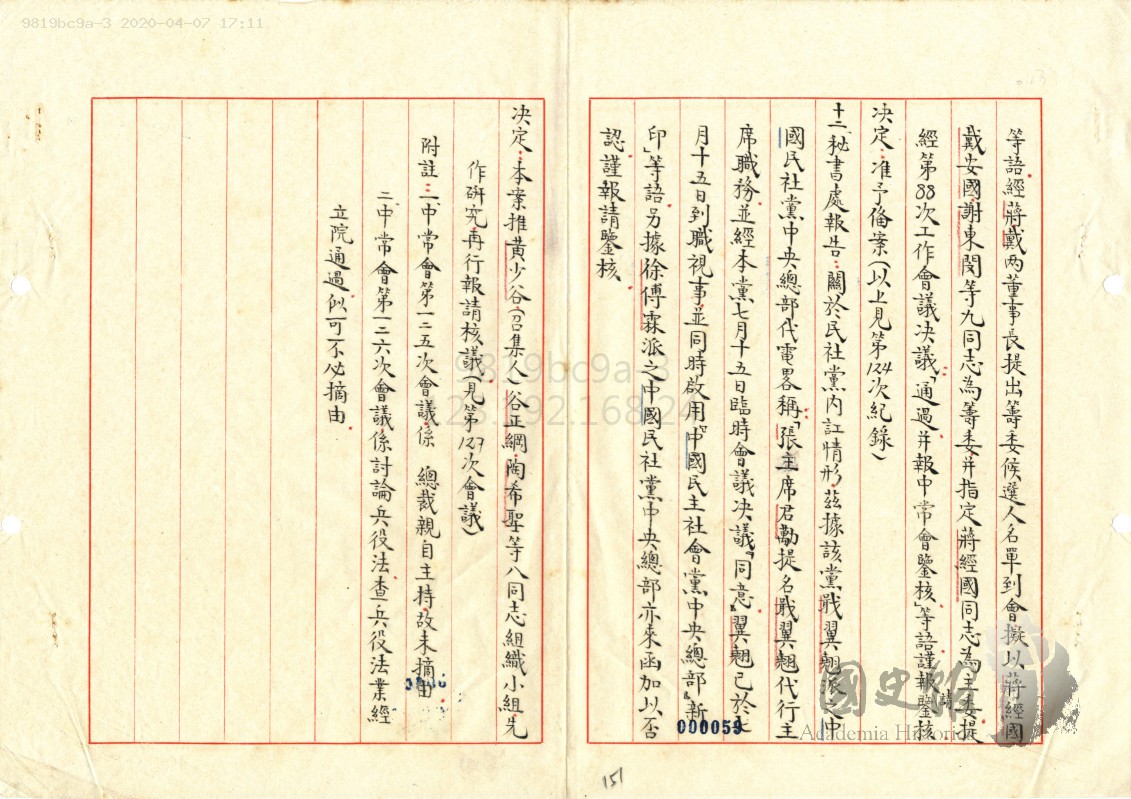 9819bc9a-3 2020-04-07 17:11
等語經蔣戴兩董事長提出籌委候選人名單到會擬以蔣經國
戴安國謝東閔等九同志為籌委并指定蔣經國同志為主委提
經第88次工作會議决議「通過并報中常會鑒核」等語謹報請鑒核
决定：准予備案（以上見第124次紀錄）
十二、秘書處報告：關於民社黨內訌情形，茲據該黨戢翼翹派之中
國民社黨中央總部代電畧稱「張主席君勱提名戢翼翹代行主
席職務並經本黨七月十五日臨時會議决議『同意』翼翹已於七
月十五日到職視事並同時啟用『中國民主社會黨中央總部』新
印」等語另據徐傅霖派之中國民社黨中央總部亦來函加以否
認謹報請鑒核
决定：本案推黃少谷（召集人）谷正綱陶希聖等八同志組織小組先
作研究再行報請核議（見第127次會議）
附註：一中常會第一二五次會議係 總裁親自主持故未摘由
二、中常會第一二六次會議係討論兵役法查兵役法業經
立院通過似可不必摘由
000059
151
9819bc9a-3
國史館
Academia Historica